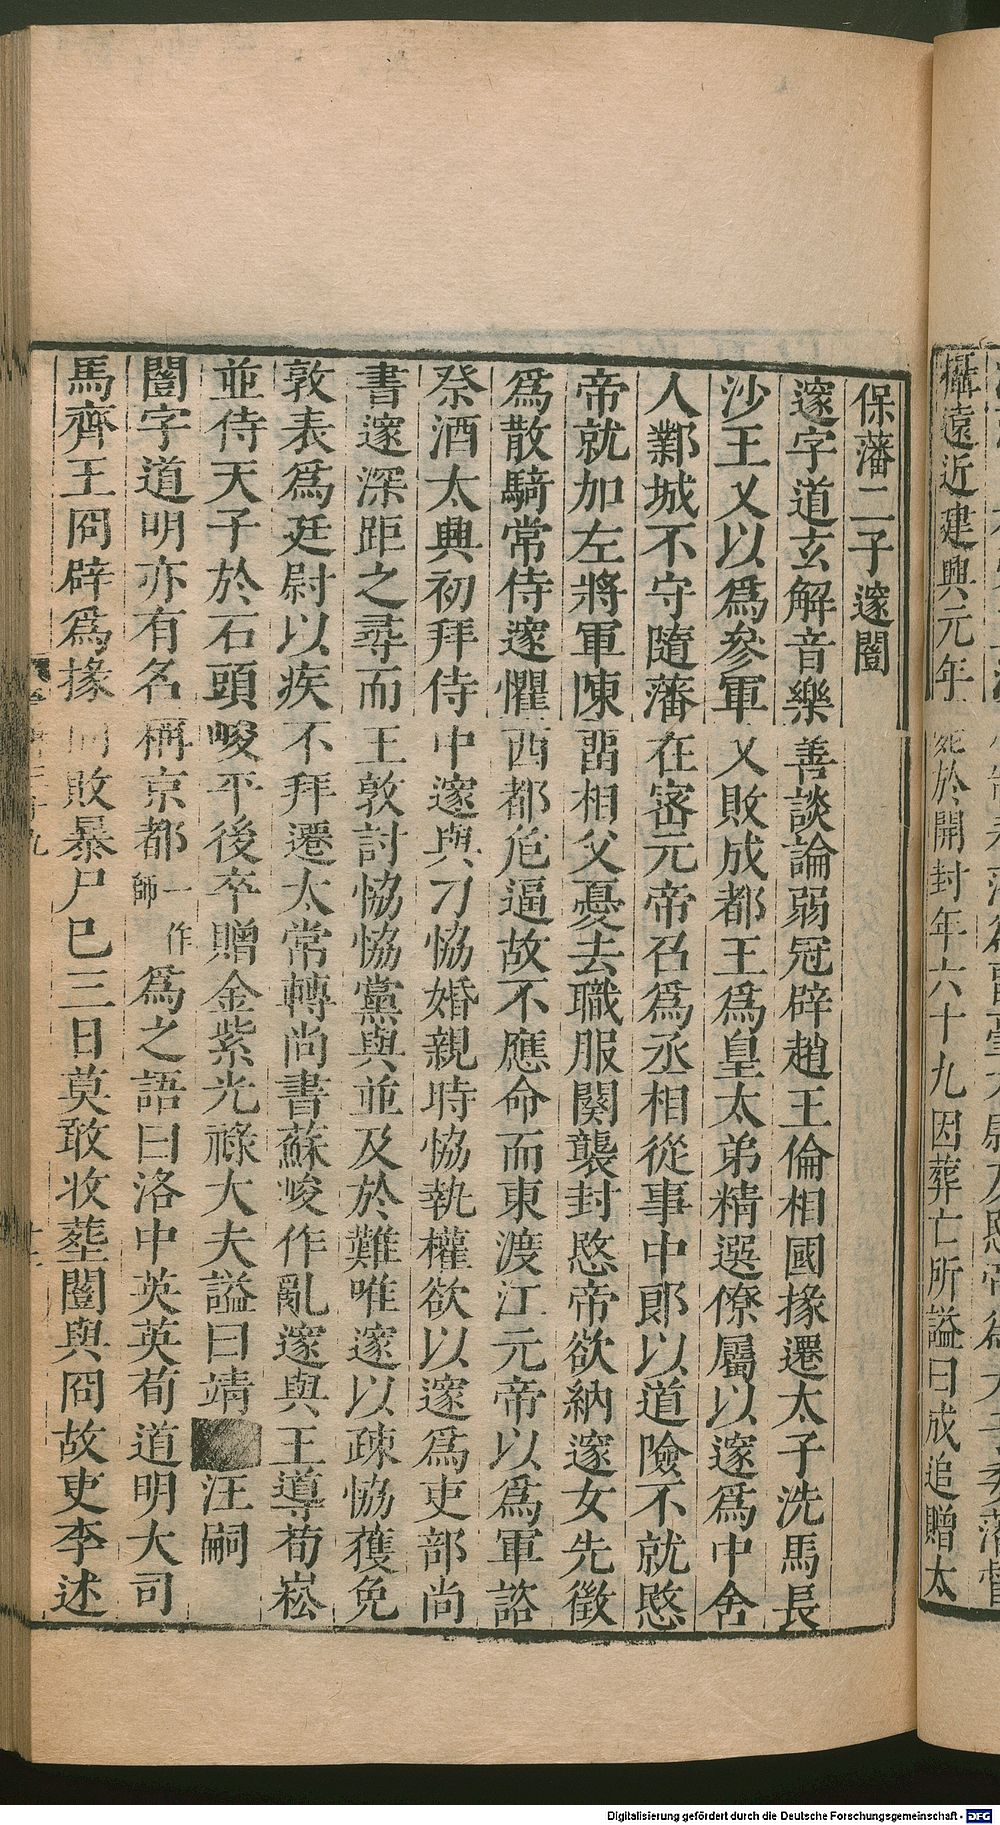 攝遠近建興元年薨於開封年六十九因葬亡所謚曰成追贈太
保藩二子邃闓
邃字道玄解音樂善談論弱冠辟趙王倫相國掾遷太子洗馬長
沙王乂以爲參軍乂敗成都王爲皇太弟精選僚屬以邃爲中舍
人鄴城不守隨藩在密元帝召爲丞相從事中郎以道險不就愍
帝就加左將軍陳畱相父憂去職服闋襲封愍帝欲納邃女先徵
爲散騎常侍邃懼西都危逼故不應命而東渡江元帝以爲軍諮
祭酒太興初拜侍中邃與刁恊婚親時恊執權欲以邃爲吏部尚
書邃深距之尋而王敦討恊恊黨與並及於難唯邃以疎恊獲免
敦表爲廷尉以疾不拜遷太常轉尚書蘇峻作亂邃與王導荀崧
並侍天子於石頭峻平後卒贈金紫光祿大夫謚曰靖汪嗣
闓字道明亦有名稱京都一作師爲之語曰洛中英英荀道明大司
馬齊王冏辟爲掾冏敗暴尸巳三日莫敢收葬闓與冏故吏李述
Digitalisierung gefördert durch die Deutsche Forschungsgemeinschaft - DFG